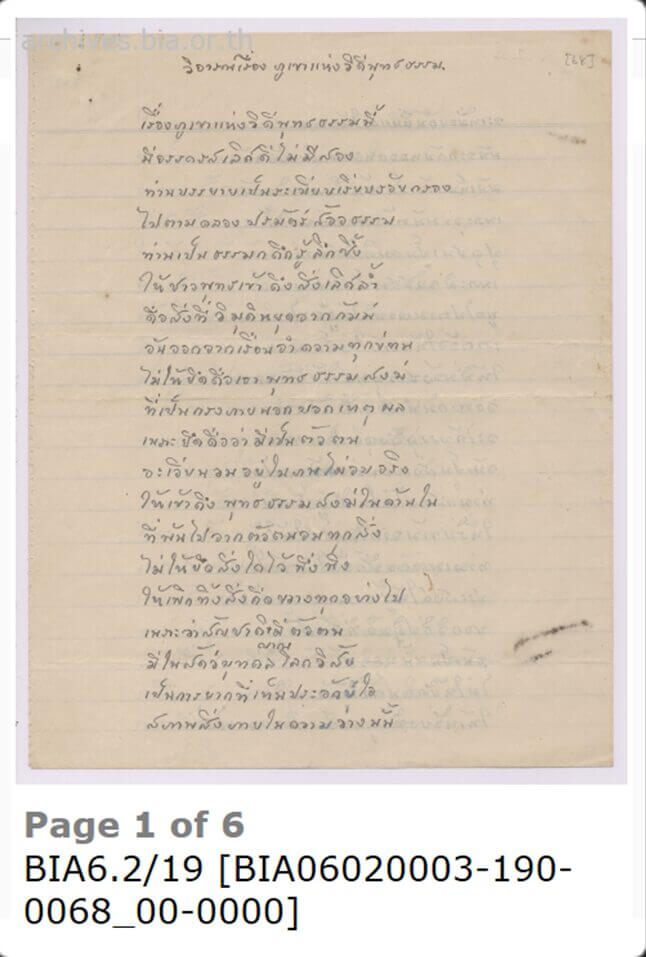 archives.bia.or.th
วิจารณ์เรื่อง ภูเขาแห่งวิถีพุทธธรรม. [68]
เรื่องภูเขาแห่งวิถีพุทธธรรมนี้
มีอรรถรสเลิศดีไม่มีสอง
ท่านบรรยายเป็นระเบียบเรียบร้อยกรอง
ไปตามคลอง ปรมัตถ์ สัจจธรรม
ท่านเป็นธรรมกถึกรู้ลึกซึ้ง
ให้ชาวพุทธเข้าถึงสิ่งเลิศล้ำ
คือสิ่งที่วิมุติหยุดจากกัมม์
อันออกจากเรือนจำความทุกข์ทน
ไม่ให้ยึดถือเอา พุทธ ธรรม สงฆ์
ที่เป็นกรงภายนอกบอกเหตุผล
เพราะยึดถือว่ามีเป็นตัวตน
จะเวียนวนอยู่ในภพไม่จบจริง
ให้เข้าถึง พุทธ ธรรม สงฆ์ในด้านใน
ที่พ้นไปจากตัวตนจนทุกสิ่ง
ไม่ให้ยึดสิ่งใดไว้พึ่งพิง
ให้เพิกทิ้งสิ่งกีดขวางทุกอย่างไป
เพราะว่าสัญชาติมีตัวตน
มีในสัตว์บุคคล โลกวิสัย
เป็นการยากที่เห็นประจักษ์ใจ
สภาพสิ่งภายในความว่างนั้น
Page 1 of 6
BIA6.2/19 [BIA06020003-190-
0068_00-0000]